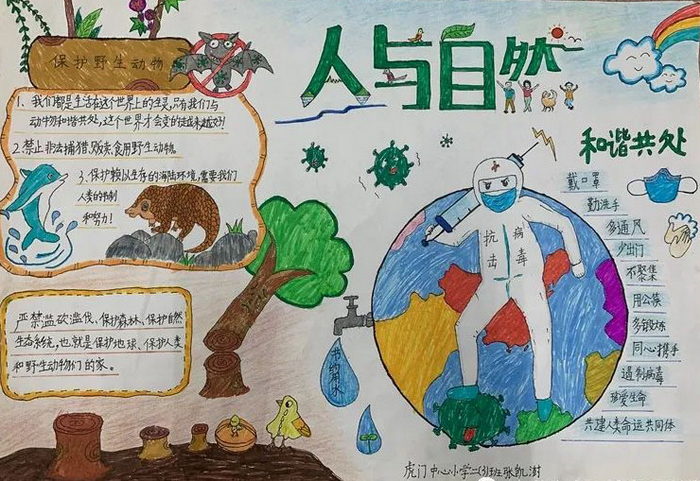 人与自然
和谐共处
保护野生动物
1、我们都是生活在这个世界上的生灵,只有我们与
动物和谐共处,这个世界才会变的越来越好!
2.禁止非法捕猎、贩卖、食用野生动物
3、保护赖以生存的海陆环境,需要我们
人类的
和努力!
严禁滥砍滥伐、保护森林、保护自然
生态系统,也就是保护地球、保护人类
和野生动物们的家。
节约用水
抗击
病毒
戴口罩
勤洗手
多通风
少出门
不聚集
用公筷
多锻炼
同心携手
遏制病毒
珍爱生命
共建人类命运共同体
虎门中心小学二(3)班张凯澍